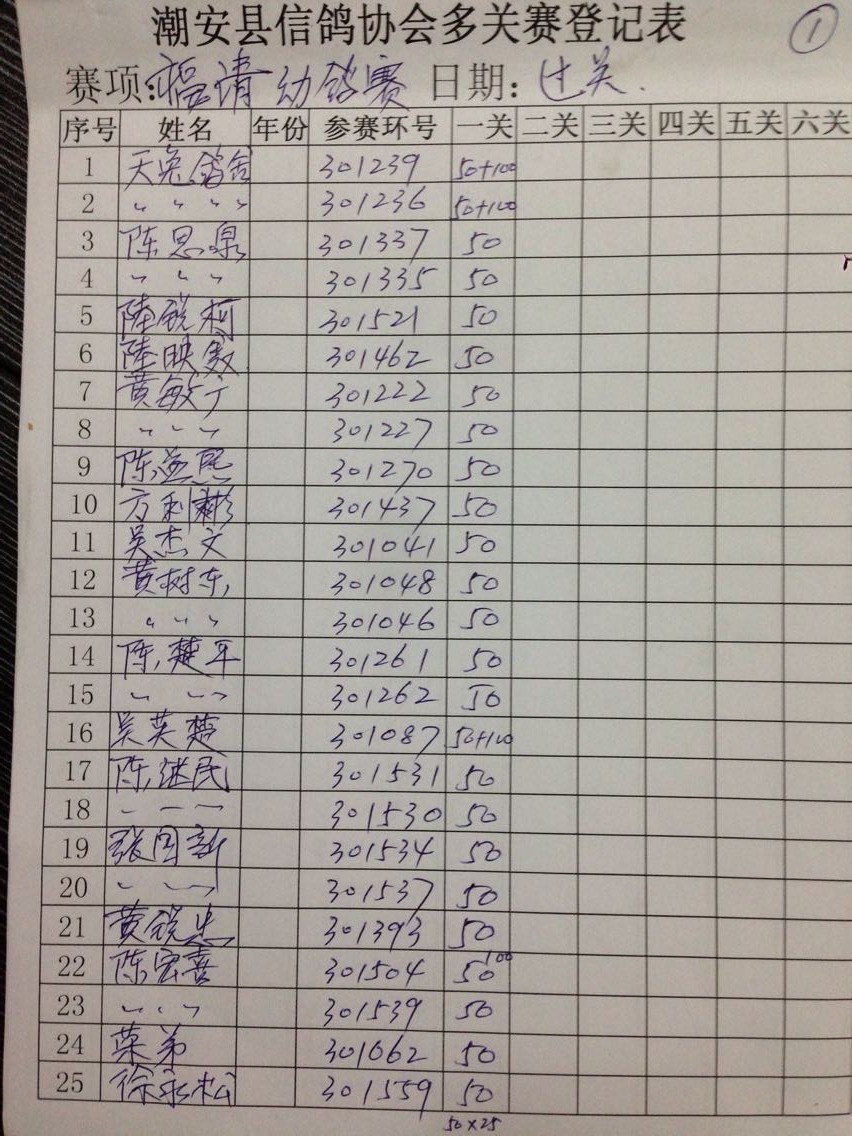 潮安县信鸽协会多关赛登记表 ①
赛项:福清幼鸽赛 日期: 过关.
序号 姓名 年份 参赛环号 一关 二关 三关 四关 五关 六关
1 天兔鸽舍 301239 50+100
2 〃 〃 〃 〃 301236 50+100
3 陈思泉 301337 50
4 〃 〃 〃 301335 50
5 陆锐柯 301521 50
6 陆映 301462 50
7 黄敏 301222 50
8 〃 〃 〃 301227 50
9 陈 301270 50
10 方利彬 301437 50
11 吴杰文 301041 50
12 黄树东 301048 50
13 〃 〃 〃 301046 50
14 陈楚平 301261 50
15 〃 〃 〃 301262 50
16 吴英楚 301087 50+100
17 陈继民 301531 50
18 〃 〃 〃 301530 50
19 张国新 301534 50
20 〃 〃 〃 301537 50
21 黄锐忠 301393 50
22 陈宏喜 301504 50 100
23 〃 〃 〃 301539 50
24 弟 301662 50
25 徐永松 301559 50
50×25